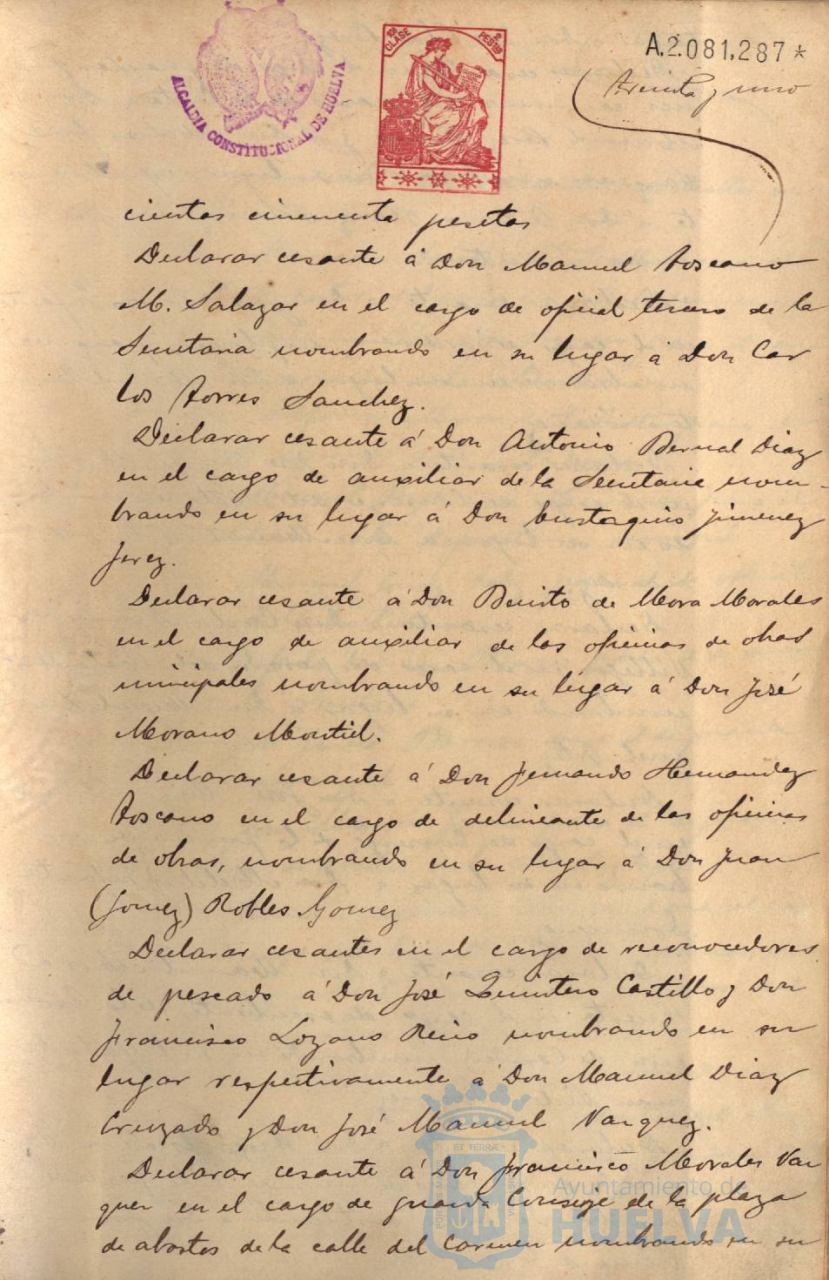 ALCALDIA CONSTITUCIONAL DE HUELVA
CLASE
PESETAS
A.2.081,287*
Treinta y uno
cientas cincuenta pesetas
Declarar cesante á Don Manuel Toscano
M. Salazar en el cargo de oficial tercero de la
Secretaria nombrando en su lugar á Don Car
los Torres Sanchez.
Declarar cesante á Don Antonio Bernal Diaz
en el cargo de auxiliar de la Secretaria nom-
brando en su lugar á Don Eustaquio Jimenez
Jerez.
Declarar cesante á Don Benito de Mora Morales
en el cargo de auxiliar de las oficinas de obras
municipales nombrando en su lugar á Don José
Morano Montiel.
Declarar cesante á Don Fernando Hernandez
Toscano en el cargo de delineante de las oficinas
de obras, nombrando en su lugar á Don Juan
(Gomez) Robles Gomez
Declarar cesantes en el cargo de reconocedores
de pescado á Don José Quintero Castillo y Don
Francisco Lozano Reino nombrando en su
lugar respectivamente á Don Manuel Diaz
Cruzado y Don José Manuel Vazquez.
Declarar cesante á Don Francisco Morales Vaz
quez en el cargo de guarda Conserje de la plaza
de abastos de la calle del Carmen nombrando en su
Ayuntamiento de
HUELVA